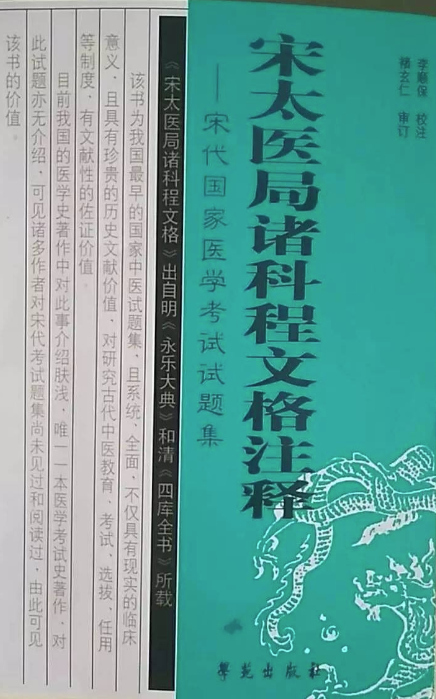 李顺保 校注
褚玄仁 审订
宋太医局诸科程文格注释
——宋代国家医学考试试题集
学苑出版社
《宋太医局诸科程文格》出自明《永乐大典》和清《四库全书》所载
该书为我国最早的国家中医试题集，且系统、全面，不仅具有现实的临床
意义，且具有珍贵的历史文献价值，对研究古代中医教育、考试、选拔、任用
等制度，有文献性的佐证价值。
目前我国的医学史著作中对此事介绍肤浅，唯一一本医学考试史著作，对
此试题亦无介绍，可见诸多作者对宋代考试题集尚未见过和阅读过，由此可见
该书的价值。